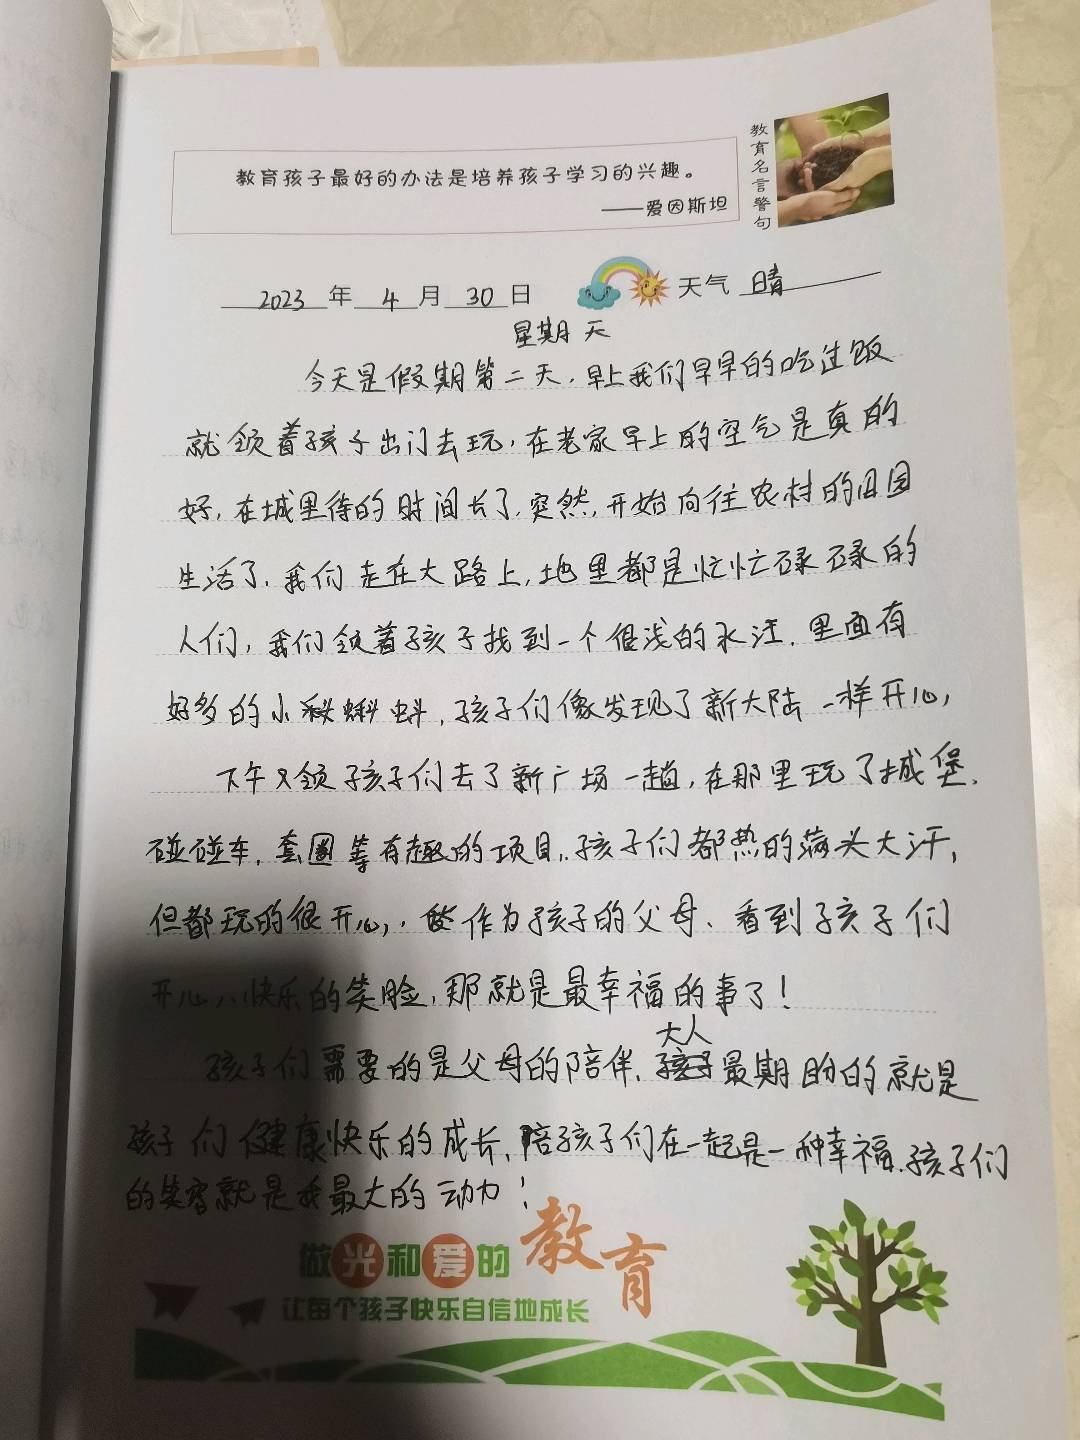 教育孩子最好的办法是培养孩子学习的兴趣。
——爱因斯坦
教育名言警句
2023年4月30日
天气 晴
星期天
今天是假期第二天，早上我们早早的吃过饭
就领着孩子出门去玩，在老家早上的空气是真的
好，在城里待的时间长了，突然，开始向往农村的田园
生活了，我们走在大路上，地里都是忙忙碌碌的
人们，我们领着孩子找到一个很浅的水洼，里面有
好多的小蝌蚪，孩子们像发现了新大陆一样开心，
下午又领孩子们去了新广场一趟，在那里玩了城堡、
碰碰车，套圈等有趣的项目，孩子们都热的满头大汗，
但都玩的很开心，，作为孩子的父母、看到孩子们
开心、快乐的笑脸，那就是最幸福的事了！
孩子们需要的是父母的陪伴，大人最期盼的就是
孩子们健康快乐的成长，陪孩子们在一起是一种幸福，孩子们
的笑容就是我最大的动力！
做光和爱的教育
让每个孩子快乐自信地成长